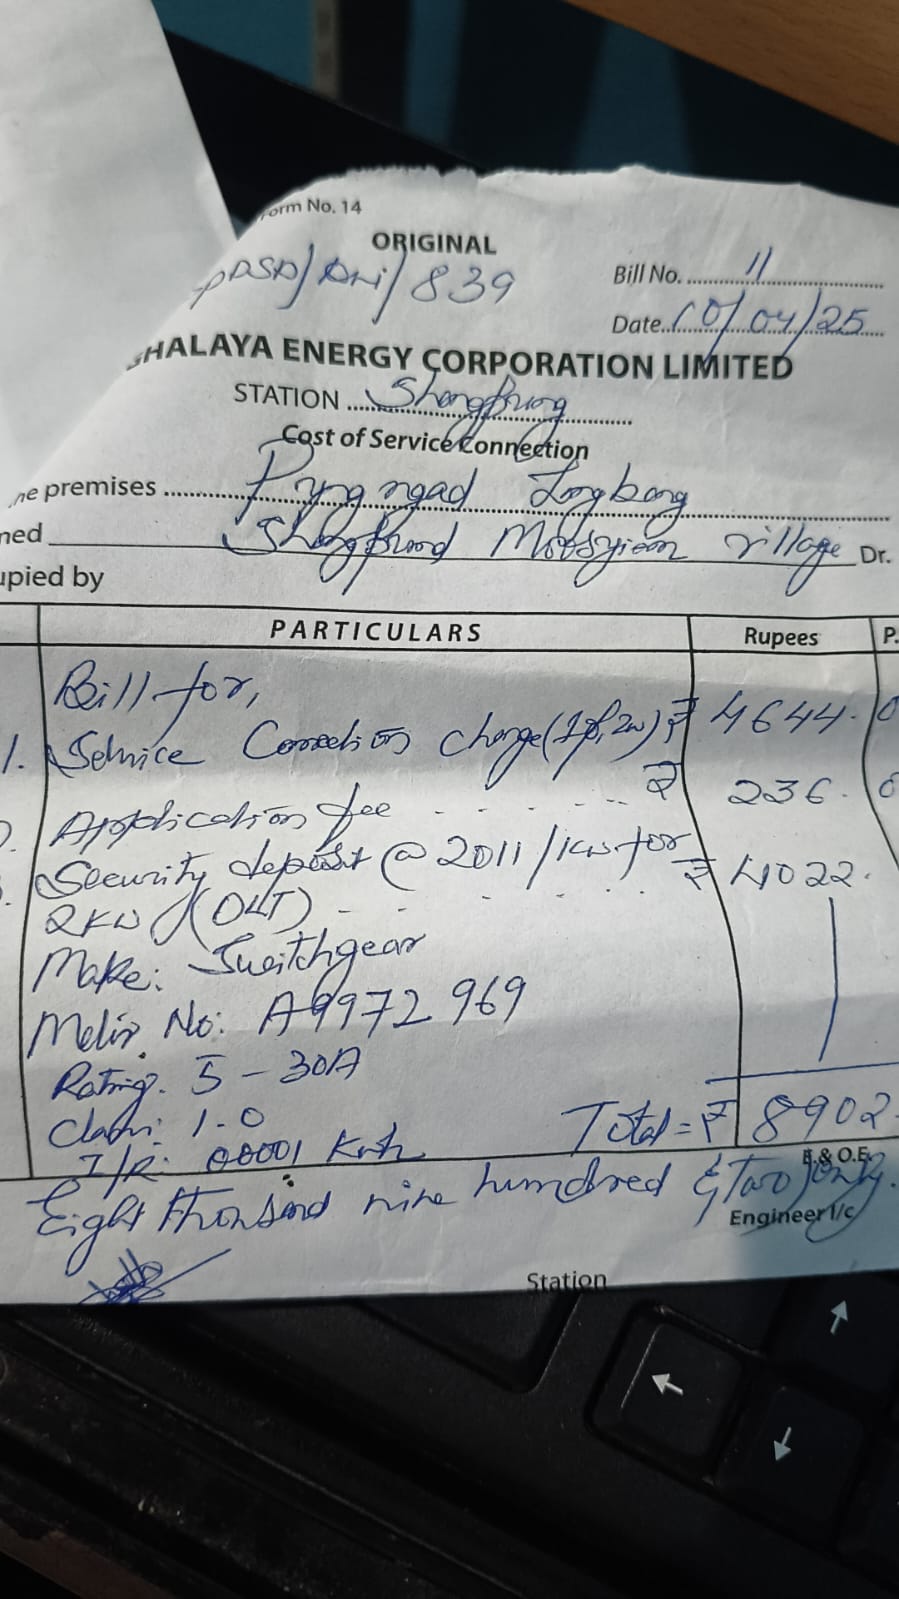 orm No. 14
ORIGINAL
/ 839
Bill No. 11
Date 10/04/25
HALAYA ENERGY CORPORATION LIMITED
STATION
Cost of Service Connection
he premises Pyngngad Longbang
ned village Dr.
upied by
PARTICULARS Rupees P.
Bill for,
1. Service Connection charge (1ø, 2w) ₹ 4644.0
Application fee ₹ 236.0
Security deposit @ 2011/kw for ₹ 4022.
2KW (DLT)
Make: Switchgear
Meter No: A9972969
Rating: 5 - 30A
Class: 1.0
I/R: 00001 Kwh Total = ₹ 8902.
E.& O.E.
Eight thousand nine hundred & Two Only.
Engineer I/c
Station